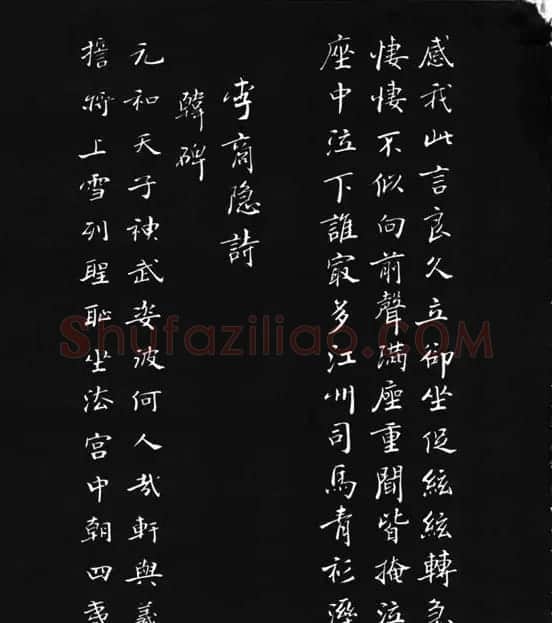 感我此言良久立卻坐促絃絃轉急
悽悽不似向前聲滿座重聞皆掩泣
座中泣下誰最多江州司馬青衫溼
李商隱詩
韓碑
元和天子神武姿彼何人哉軒與羲
誓將上雪列聖恥坐法宮中朝四夷
Shufaziliao.COM